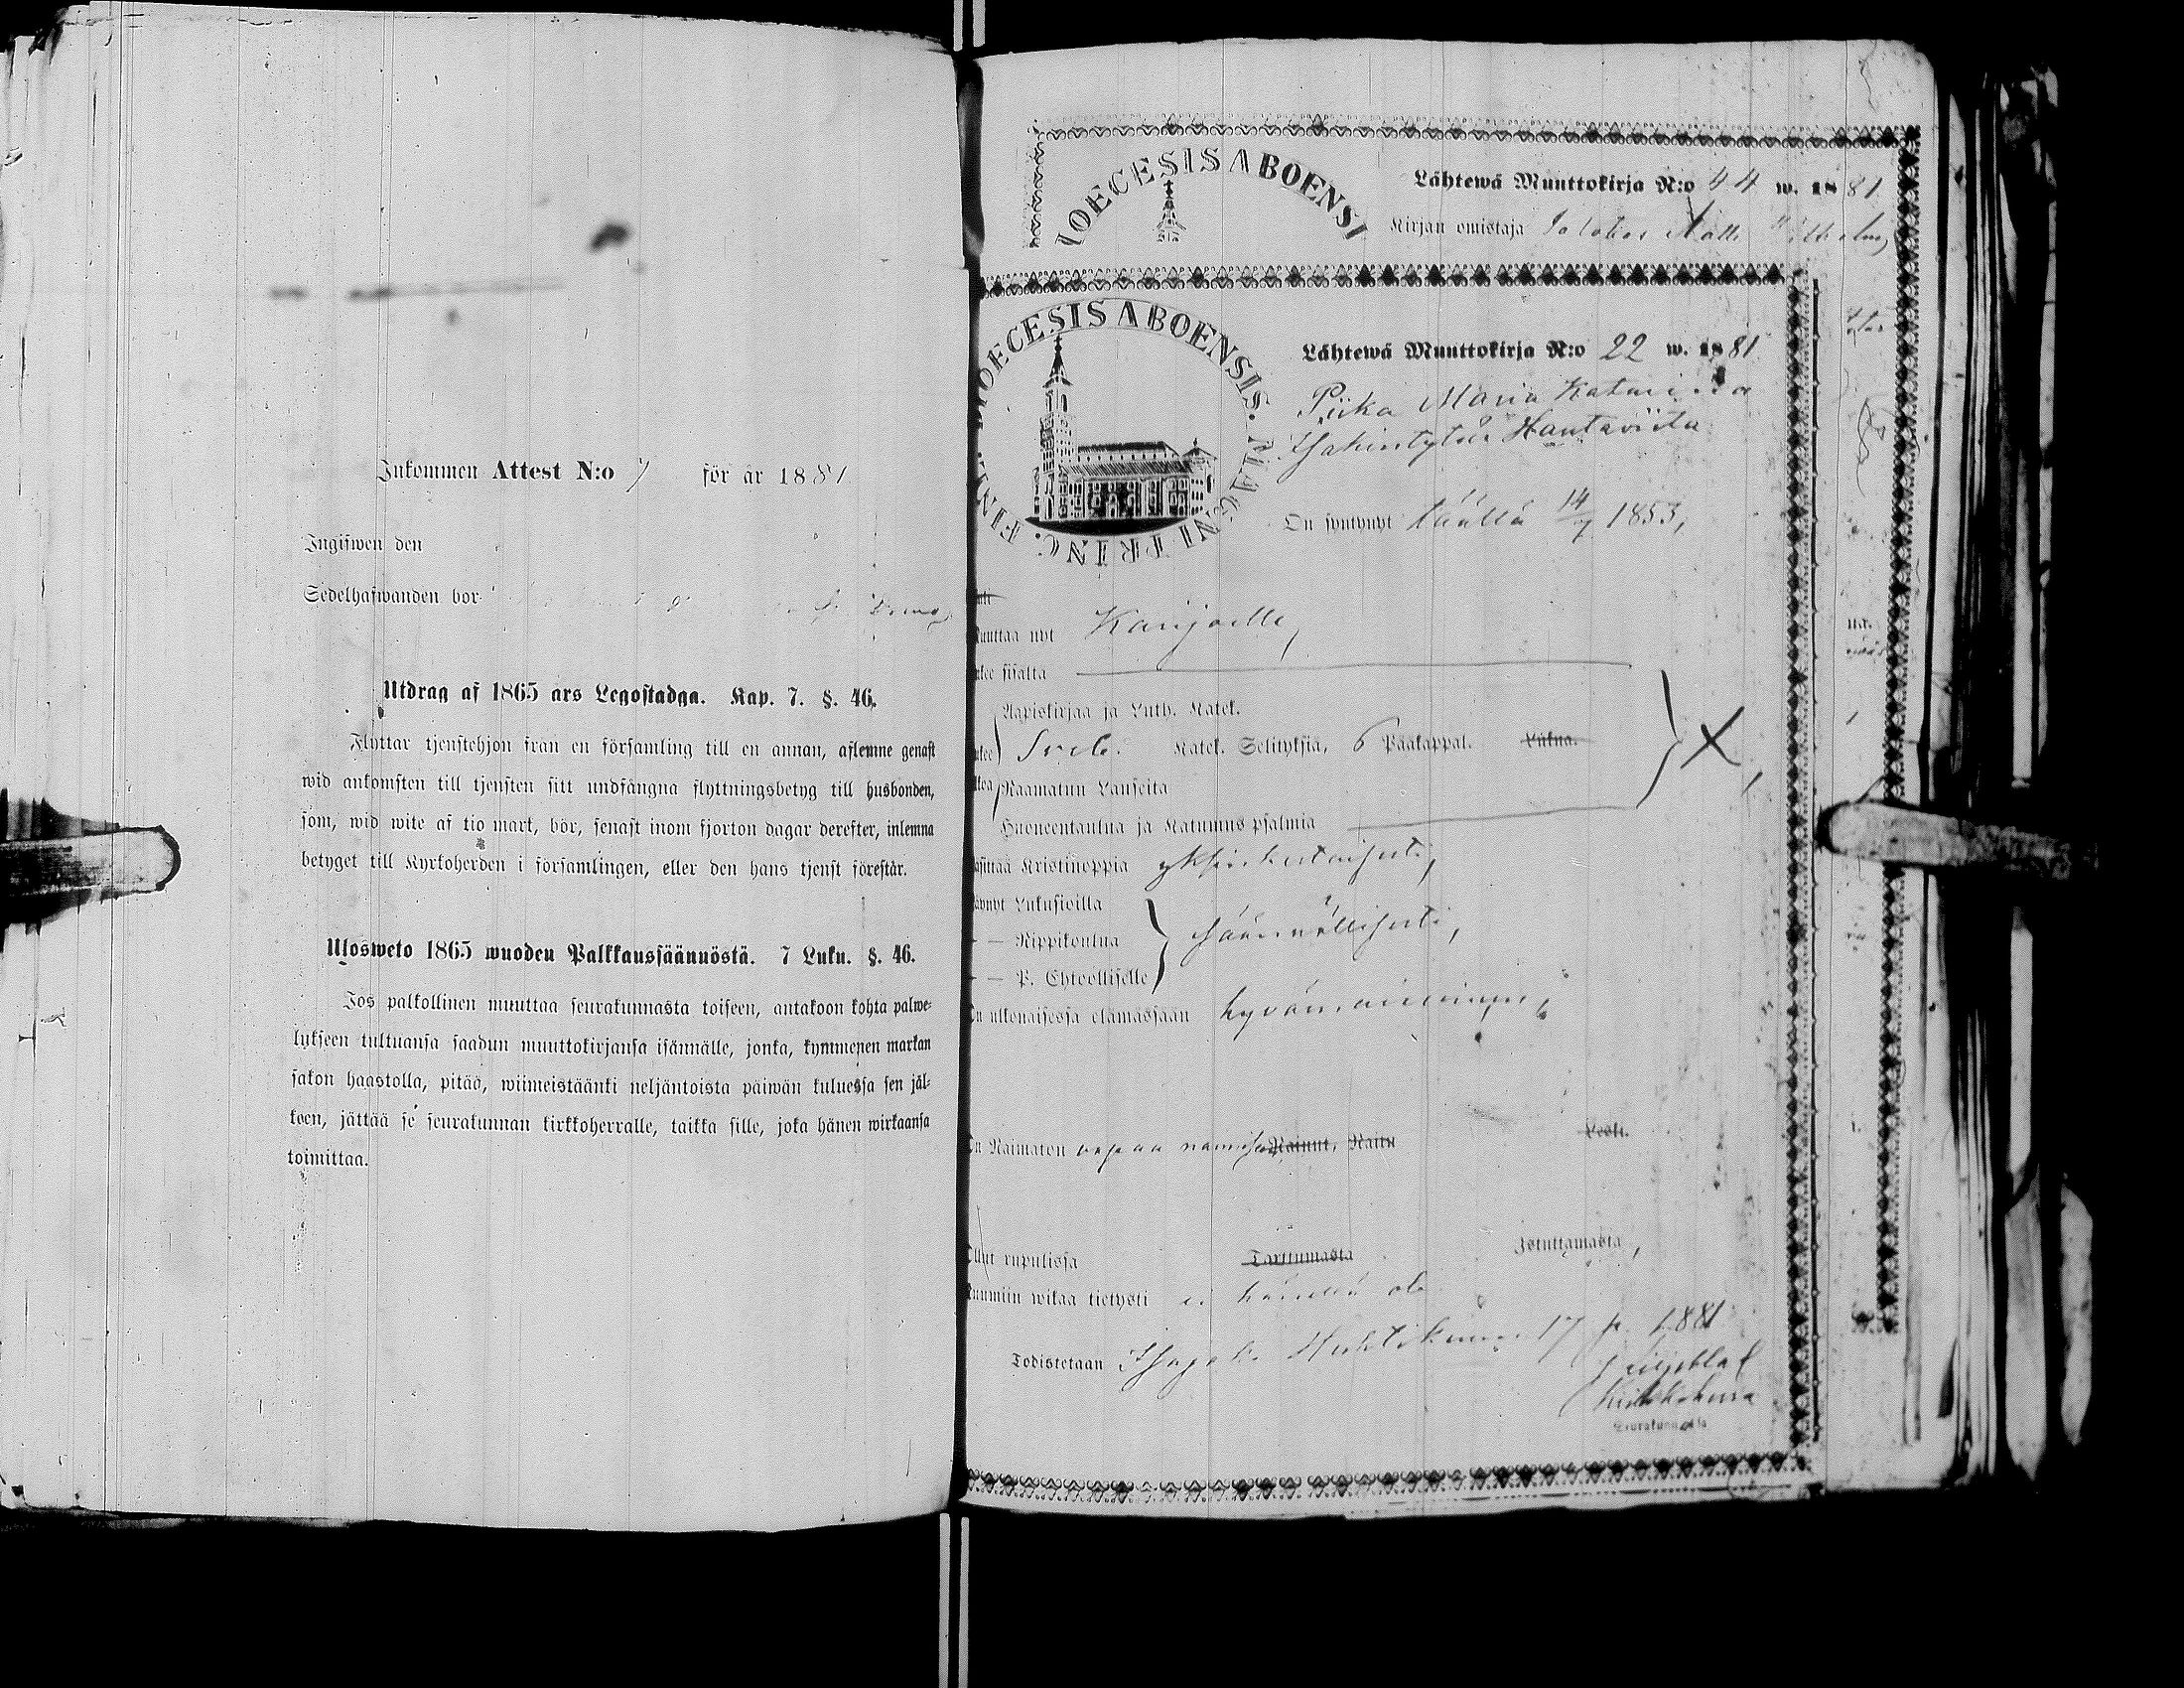 Inkommen Attest N:o 7 för år 1881
Ingifwen den
Sedelhafwanden bor
Utdrag af 1865 års Legostadga. Kap. 7. §. 46.
Flyttar tjenstehjon från en församling till en annan, aflemne genast
wid ankomsten till tjensten sitt undfångna flyttningsbetyg till husbonden,
som, wid wite af tio mark, bör, senast inom fjorton dagar derefter, inlemna
betyget till Kyrkoherden i församlingen, eller den hans tjenst förestår.
Ulosweto 1865 wuoden Palkkaussäännöstä. 7 Luku. §. 46.
Jos palkollinen muuttaa seurakunnasta toiseen, antakoon kohta palwe-
lykseen tultuansa saadun muuttokirjansa isännälle, jonka, kymmenen markan
sakon haastolla, pitää, wiimeistäänki neljäntoista päiwän kuluessa sen jäl-
keen, jättää se seurakunnan kirkkoherralle, taikka sille, joka hänen wirkaansa
toimittaa.
IOECESIS ABOENSI
Lähtewä Muuttokirja N:o 44 w. 1881
Kirjan omistaja
OECESIS ABOENSIS. MAGNI PRINC. FINL.
Lähtewä Muuttokirja N:o 22 w. 1881
Piika Maria Katariina
Isakintytär Hautaviita
On syntynyt täällä 14/7 1853,
uuttaa nyt Karijoelle,
ukee sisältä
Aapiskirjaa ja Luth. Katek.
ukee Katek. Selityksiä, 6 Pääkappal. Lukua.
lkoa Raamatun Lauseita
Huoneentaulua ja Katumus psalmia
äsittää Kristinoppia yksinkertaisesti,
äynyt Lukusioilla
— Rippikoulua säännöllisesti,
— P. Ehtoolliselle
n ulkonaisessa elämässään hyvänmaineinen,
n Naimaton vapaa naimisen Nainut, Naitu Leski.
llut rupulissa Tarttumasta Istuttamasta,
uumiin wikaa tietysti ei hänellä ole
Todistetaan Isojoki Huhtikuun 17 p. 1881
Liljeblad
Kirkkoherra
Seurakunnassa